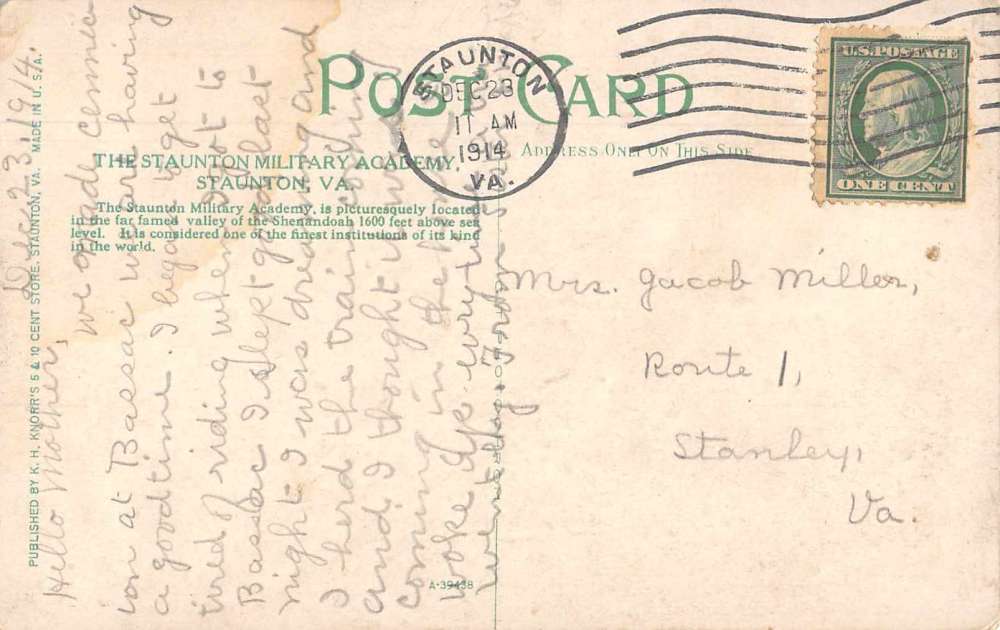 POST CARD
THE STAUNTON MILITARY ACADEMY,
STAUNTON, VA.
The Staunton Military Academy, is picturesquely located
in the far famed valley of the Shenandoah 1600 feet above sea
level. It is considered one of the finest institutions of its kind
in the world.
ADDRESS ONLY ON THIS SIDE
STAUNTON
DEC 23
11 AM
1914
VA.
U.S. POSTAGE
ONE CENT
PUBLISHED BY K. H. KNORR'S 5 & 10 CENT STORE, STAUNTON, VA. MADE IN U. S. A.
A-39438
Dec 23, 1914
Hello Mother,
we made
ion at Bassac were having
a good time. I began to get
tired of riding when I got to
Bassac I slept good last
night I was dreaming and
I herd the train coming
and I thought it was
coming in the
woke
went
Mrs. Jacob Miller,
Route 1,
Stanley,
Va.